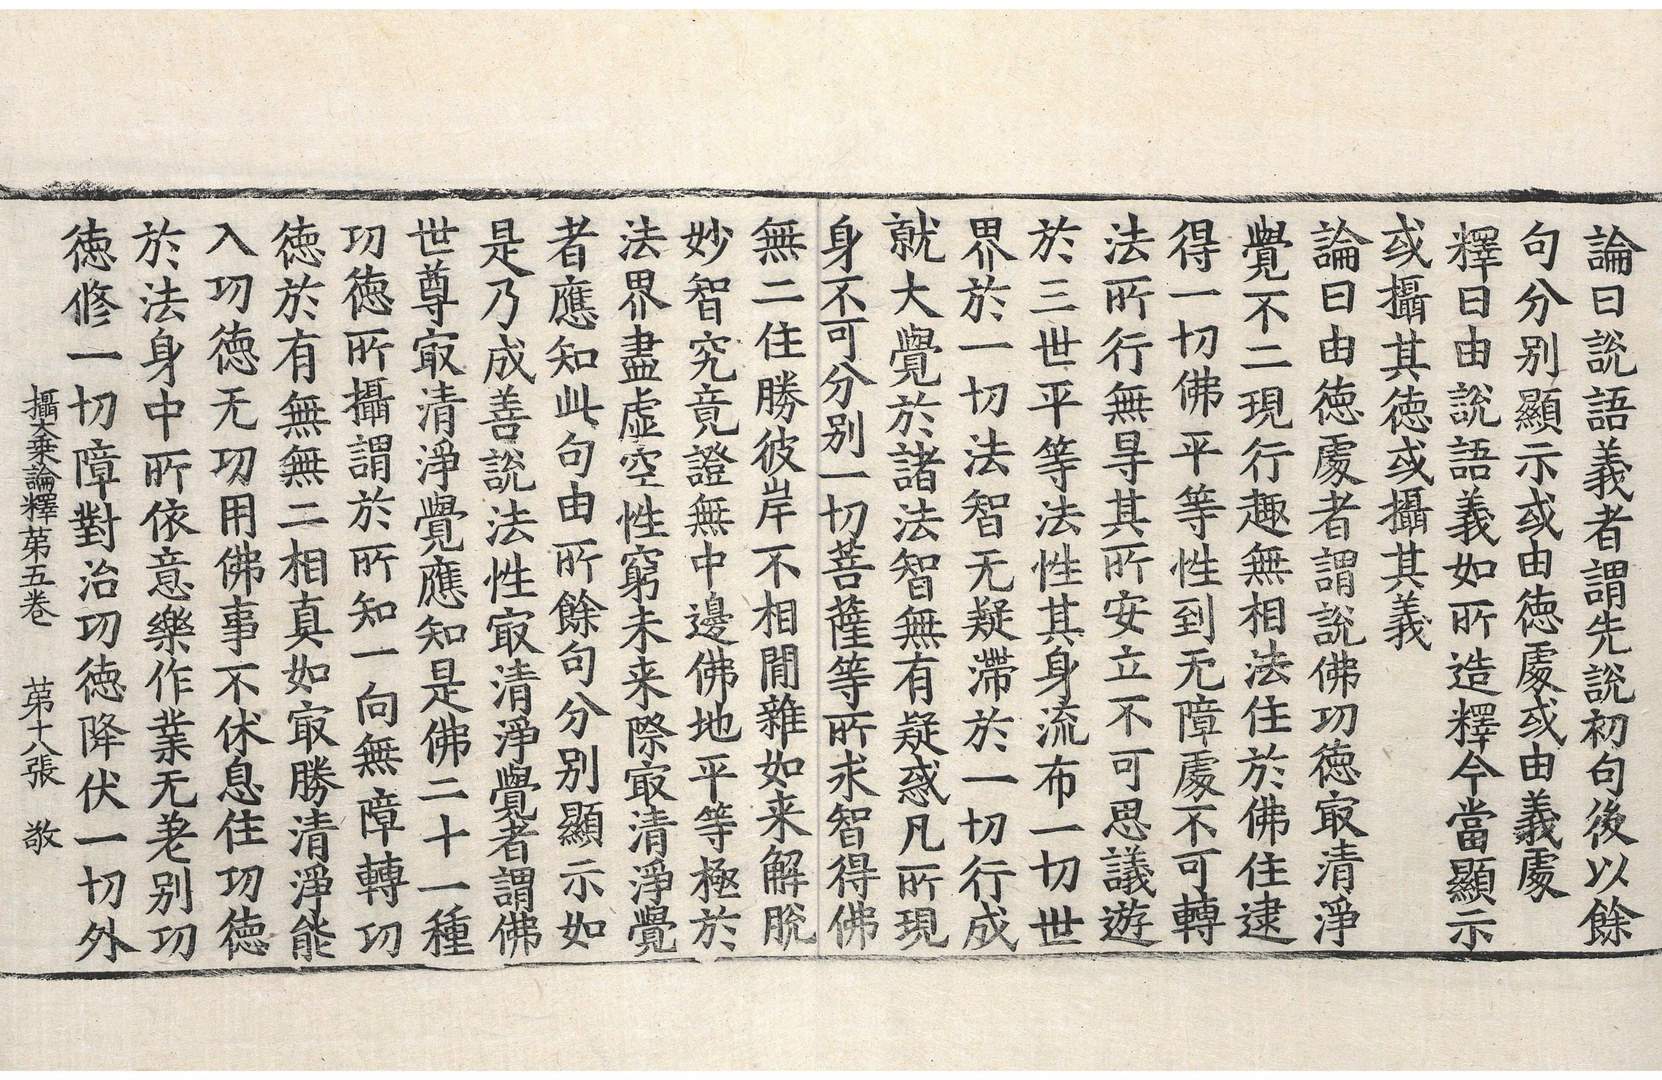 論曰說語義者謂先說初句後以餘
句分別顯示或由徳處或由義處
釋曰由說語義如所造釋今當顯示
或攝其徳或攝其義
論曰由徳處者謂說佛功徳寂清淨
覺不二現行趣無相法住於佛住逮
得一切佛平等性到无障處不可轉
法所行無㝵其所安立不可思議遊
於三世平等法性其身流布一切世
界於一切法智无疑滯於一切行成
就大覺於諸法智無有疑惑凡所現
身不可分別一切菩薩等所求智得佛
無二住勝彼岸不相間雜如来解脫
妙智究竟證無中邊佛地平等極於
法界盡虛空性窮未来際㝡清淨覺
者應知此句由所餘句分別顯示如
是乃成善說法性㝡清淨覺者謂佛
世尊㝡清淨覺應知是佛二十一種
功徳所攝謂於所知一向無障轉功
徳於有無無二相真如㝡勝清淨能
入功徳无功用佛事不休息住功徳
於法身中所依意樂作業无差別功
徳修一切障對治功徳降伏一切外
攝大乗論釋第五卷 第十八張 敬